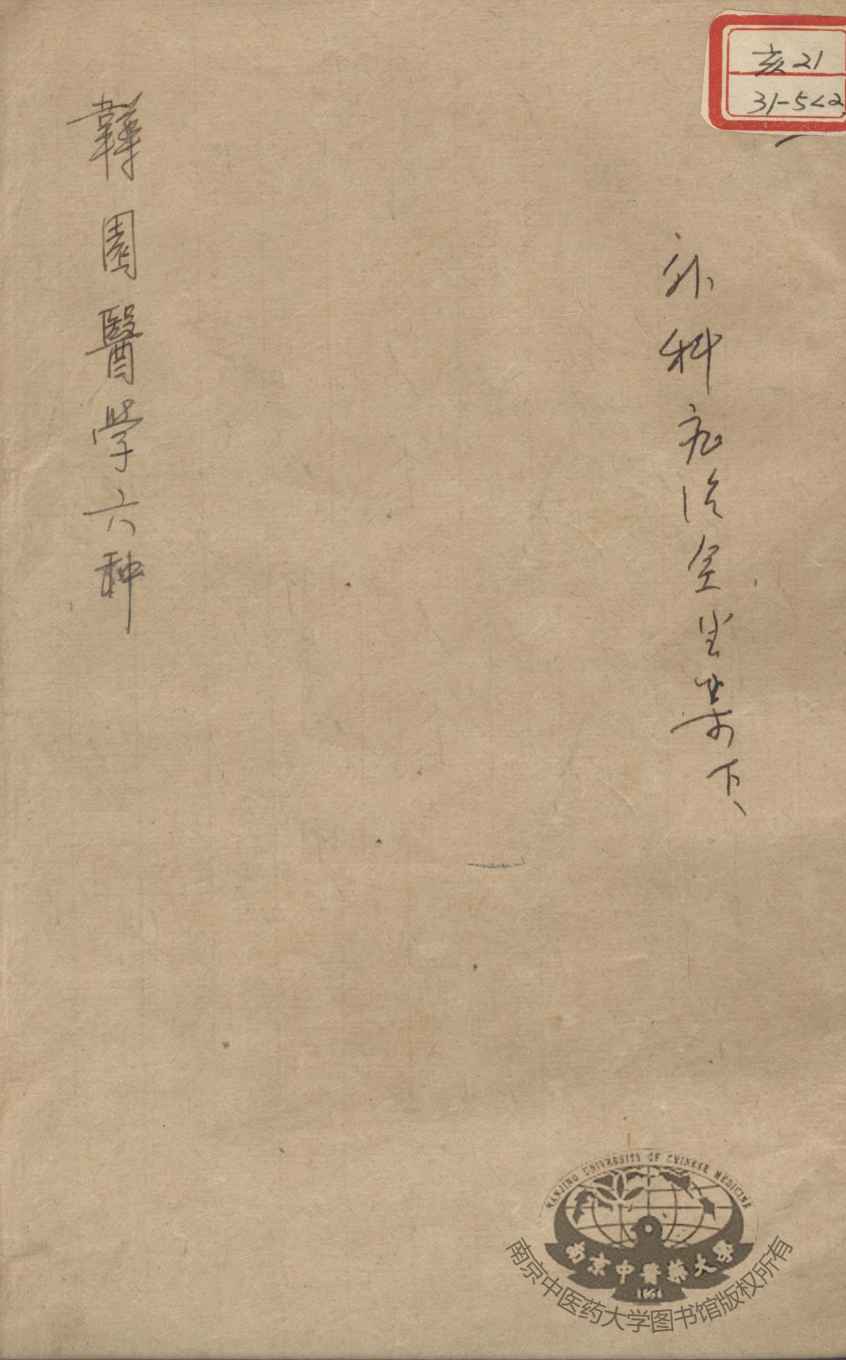 亥21
31-5<2
外科症治全生集下
韡園醫學六种
NANJING UNIVERSITY OF CHINESE MEDICINE
南京中醫藥大學
1954
南京中医药大学图书馆版权所有